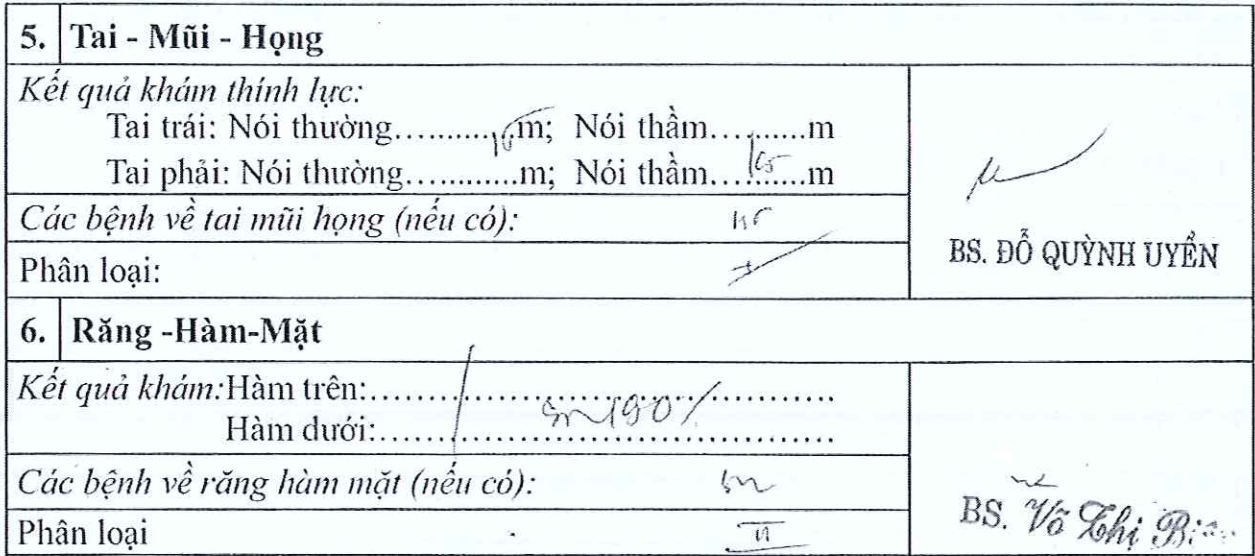 5. Tai - Mũi - Họng
Kết quả khám thính lực:
Tai trái: Nói thường...........m; Nói thầm..........m
Tai phải: Nói thường...........m; Nói thầm..........m
Các bệnh về tai mũi họng (nếu có):
Phân loại:
BS. ĐỖ QUỲNH UYỂN
6. Răng -Hàm-Mặt
Kết quả khám:Hàm trên:..........................................
Hàm dưới:..........................................
Các bệnh về răng hàm mặt (nếu có):
Phân loại II
BS. Võ Thị